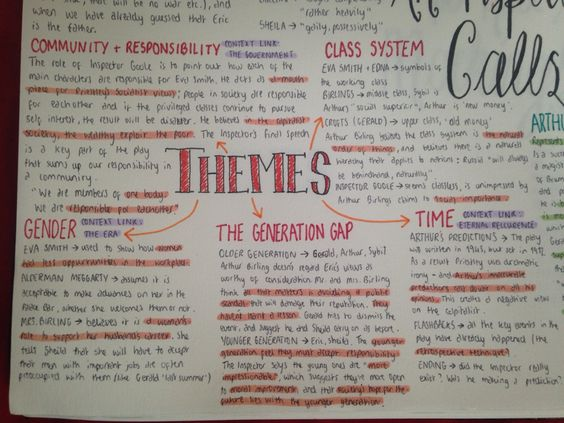 such, that will be no war etc.), and
when we have already guessed that Eric
is the father.
"rather heavily"
SHEILA → "gaily, possessively"
An Inspector
Calls
COMMUNITY + RESPONSIBILITY
CONTEXT LINK:
THE GOVERNMENT
The role of Inspector Goole is to point out how each of the
main characters are responsible for Eva Smith. He acts as a mouth
piece for Priestley's Socialist views; people in society are responsible
for each other and if the privileged classes continue to pursue
self interest, the result will be disaster. He believes in the capitalist
society the wealthy exploit the poor. The Inspector's Final Speech
is a key part of the play
that sums up our responsibility in
a community.
"We are members of one body.
We are responsible for each other."
CLASS SYSTEM
EVA SMITH + EDNA → symbols of
the working class
BIRLINGS → middle class, Sybil is
Arthur's "social superior", Arthur is 'new money'.
CROFTS (GERALD) → upper class, 'old money'
Arthur Birling believes the class system is the natural
order of things, and believes there is a natural
hierarchy that applies to nations: Russia "will always
be behindhand, naturally"
INSPECTOR GOOLE → seems classless, is unimpressed by
Arthur Birling's claims to social importance
THEMES
GENDER
CONTEXT LINK:
THE ERA
EVA SMITH → used to show how women
had less opportunities in the workplace
ALDERMAN MEGGARTY → assumes it is
acceptable to make advances on her in the
Palace Bar, whether she welcomes them or not.
MRS. BIRLING → believes it is a woman's
role to support her husbands career. She
tells Sheila that she will have to accept
that men with important jobs are often
preoccupied with them (like Gerald 'last summer')
THE GENERATION GAP
OLDER GENERATION → Gerald, Arthur, Sybil
Arthur Birling doesn't regard Eric's views as
worthy of consideration. Mr and Mrs. Birling
think all that matters is avoiding a public
scandal that will damage their reputation. They
haven't learnt a lesson. Gerald tries to dismiss the
event, and suggest he and Sheila carry on as before.
YOUNGER GENERATION → Eric, Sheila. The younger
generation feel they must accept responsibility.
The Inspector says the young ones are "more
impressionable", which suggests they're more open
to moral improvement and that society's hope for the
future lies with the younger generation.
TIME
CONTEXT LINK:
ETERNAL RECURRENCE
ARTHUR'S PREDICTIONS → The play
was written in 1945, but set in 1912.
As a result Priestley uses dramatic
irony - and Arthur's inaccurate
predictions cast doubt on all his
opinions. This creates a negative view
on the capitalist.
FLASHBACKS → all the key events in the
play have already happened (the
retrospective technique)
ENDING → did the Inspector really
exist? Was he making a prediction?
ARTHUR
Represents